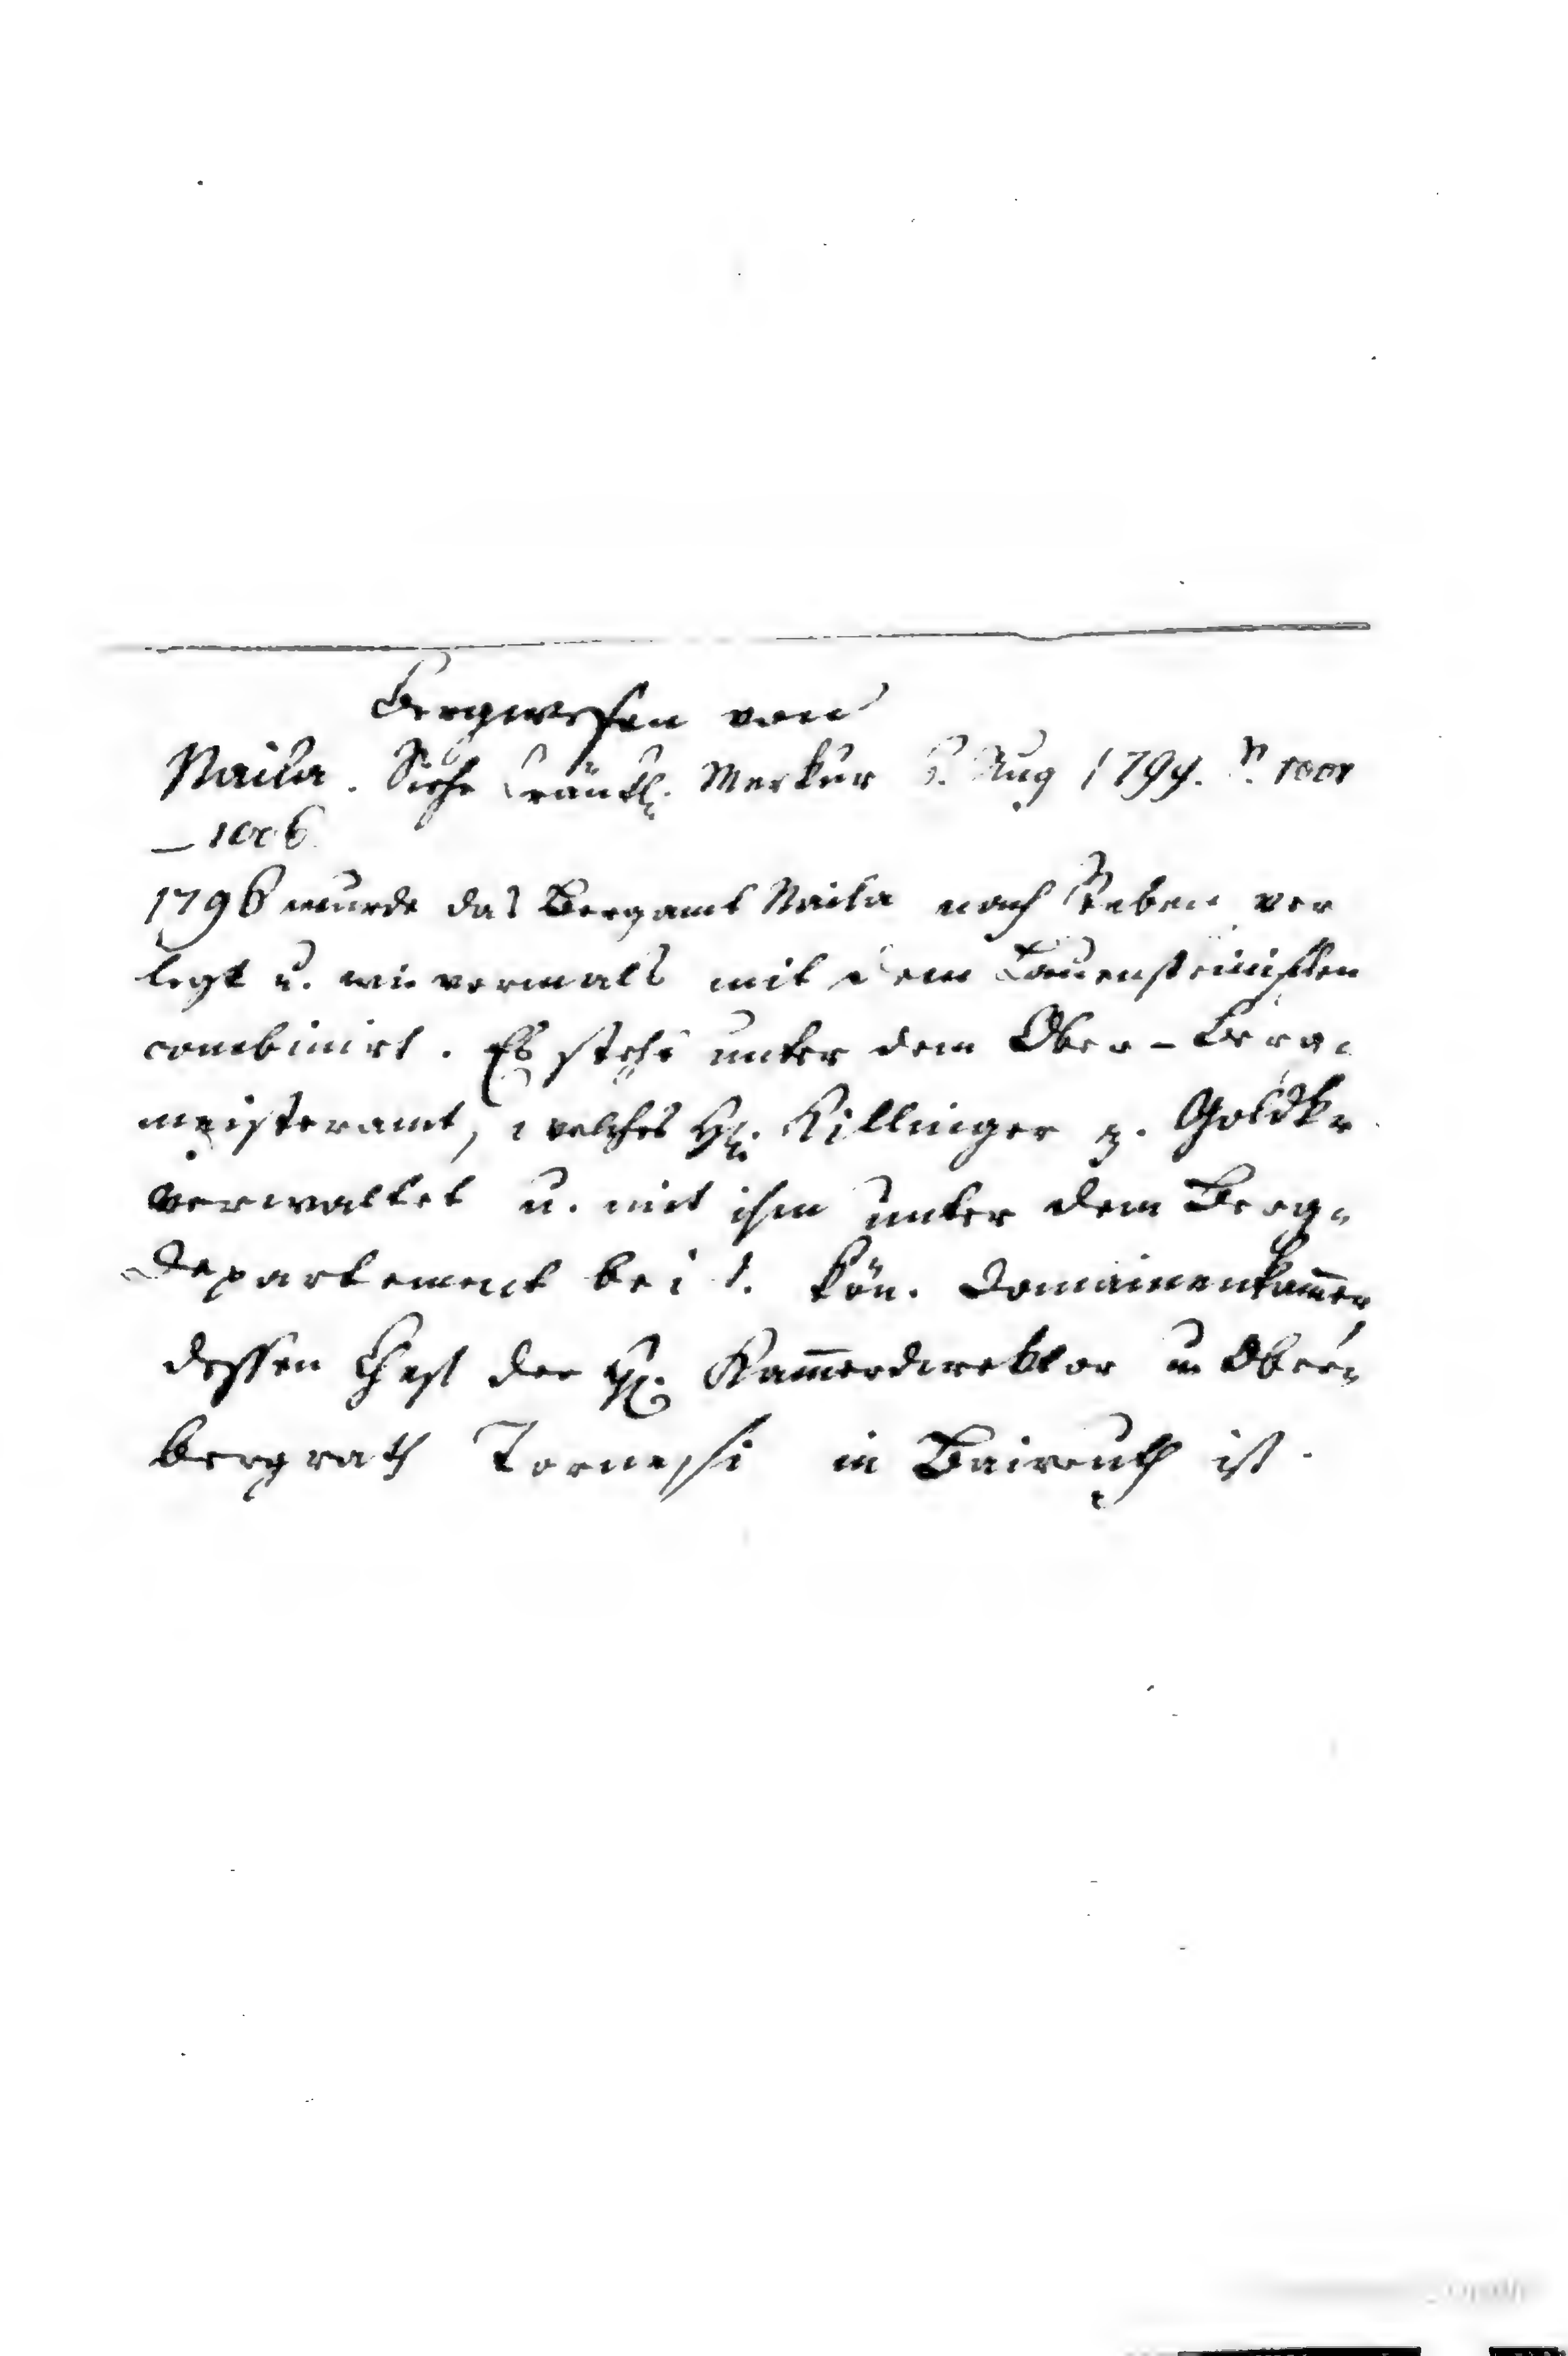 Bergwesen von
Naila. Siehe Fränk. Merkur Aug 1794. 1001
— 1006.
1796 wurde das Bergamt Naila nach Steben ver
legt u. wie vormals mit dem Lauensteinischen
combinirt. Es steht unter dem Ober-Berg-
meisteramt, welches H. Killinger z. Goldkr.
verwaltet u. mit ihm unter dem Berg-
Departement bei d. Kön. Domainenkam̅er
dessen Chef der H. Kam̅erdirektor u Ober-
bergrath Tornesi in Baireuth ist.